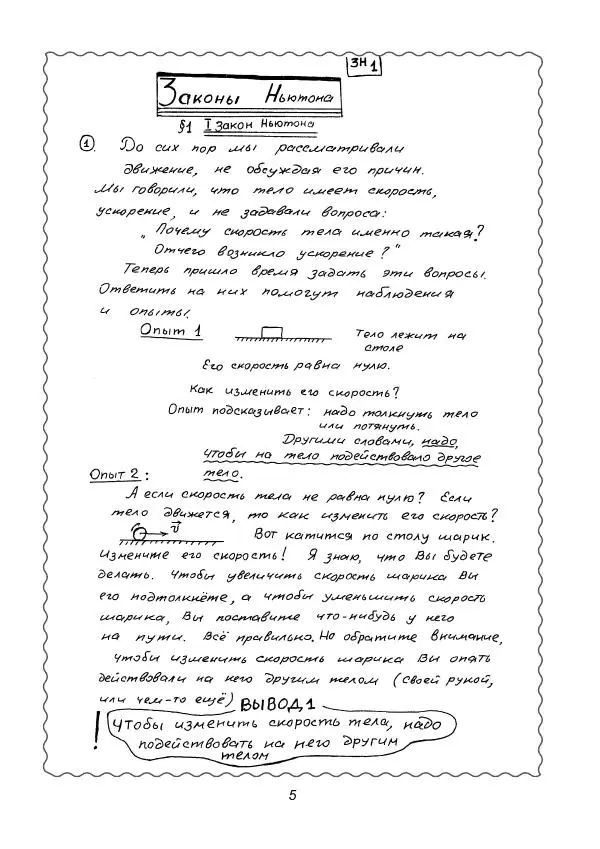 ЗН1
Законы Ньютона
§1 I Закон Ньютона
1. До сих пор мы рассматривали
движение, не обсуждая его причин.
Мы говорили, что тело имеет скорость,
ускорение, и не задавали вопроса:
„Почему скорость тела именно такая?
Отчего возникло ускорение?"
Теперь пришло время задать эти вопросы.
Ответить на них помогут наблюдения
и опыты.
Опыт 1 Тело лежит на
столе
Его скорость равна нулю.
Как изменить его скорость?
Опыт подсказывает: надо толкнуть тело
или потянуть.
Другими словами, надо,
чтобы на тело подействовало другое
тело.
Опыт 2:
А если скорость тела не равна нулю? Если
тело движется, то как изменить его скорость?
v Вот катится по столу шарик.
Измените его скорость! Я знаю, что Вы будете
делать. Чтобы увеличить скорость шарика Вы
его подтолкнёте, а чтобы уменьшить скорость
шарика, Вы поставите что-нибудь у него
на пути. Всё правильно. Но обратите внимание,
чтобы изменить скорость шарика Вы опять
действовали на него другим телом (своей рукой,
или чем-то ещё)
ВЫВОД 1
! Чтобы изменить скорость тела, надо
подействовать на него другим
телом
5